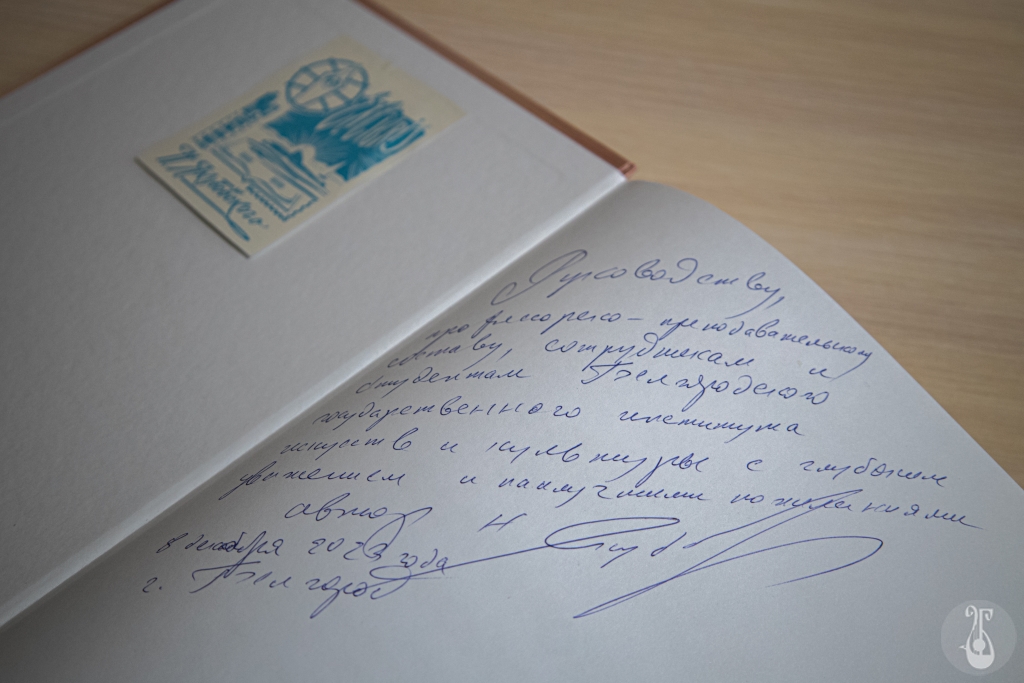 Руководству,
профессорско-преподавательскому
составу, сотрудникам и
студентам Белгородского
государственного института
искусств и культуры с глубоким
уважением и наилучшими пожеланиями
автор
8 декабря 2023 года
г. Белгород